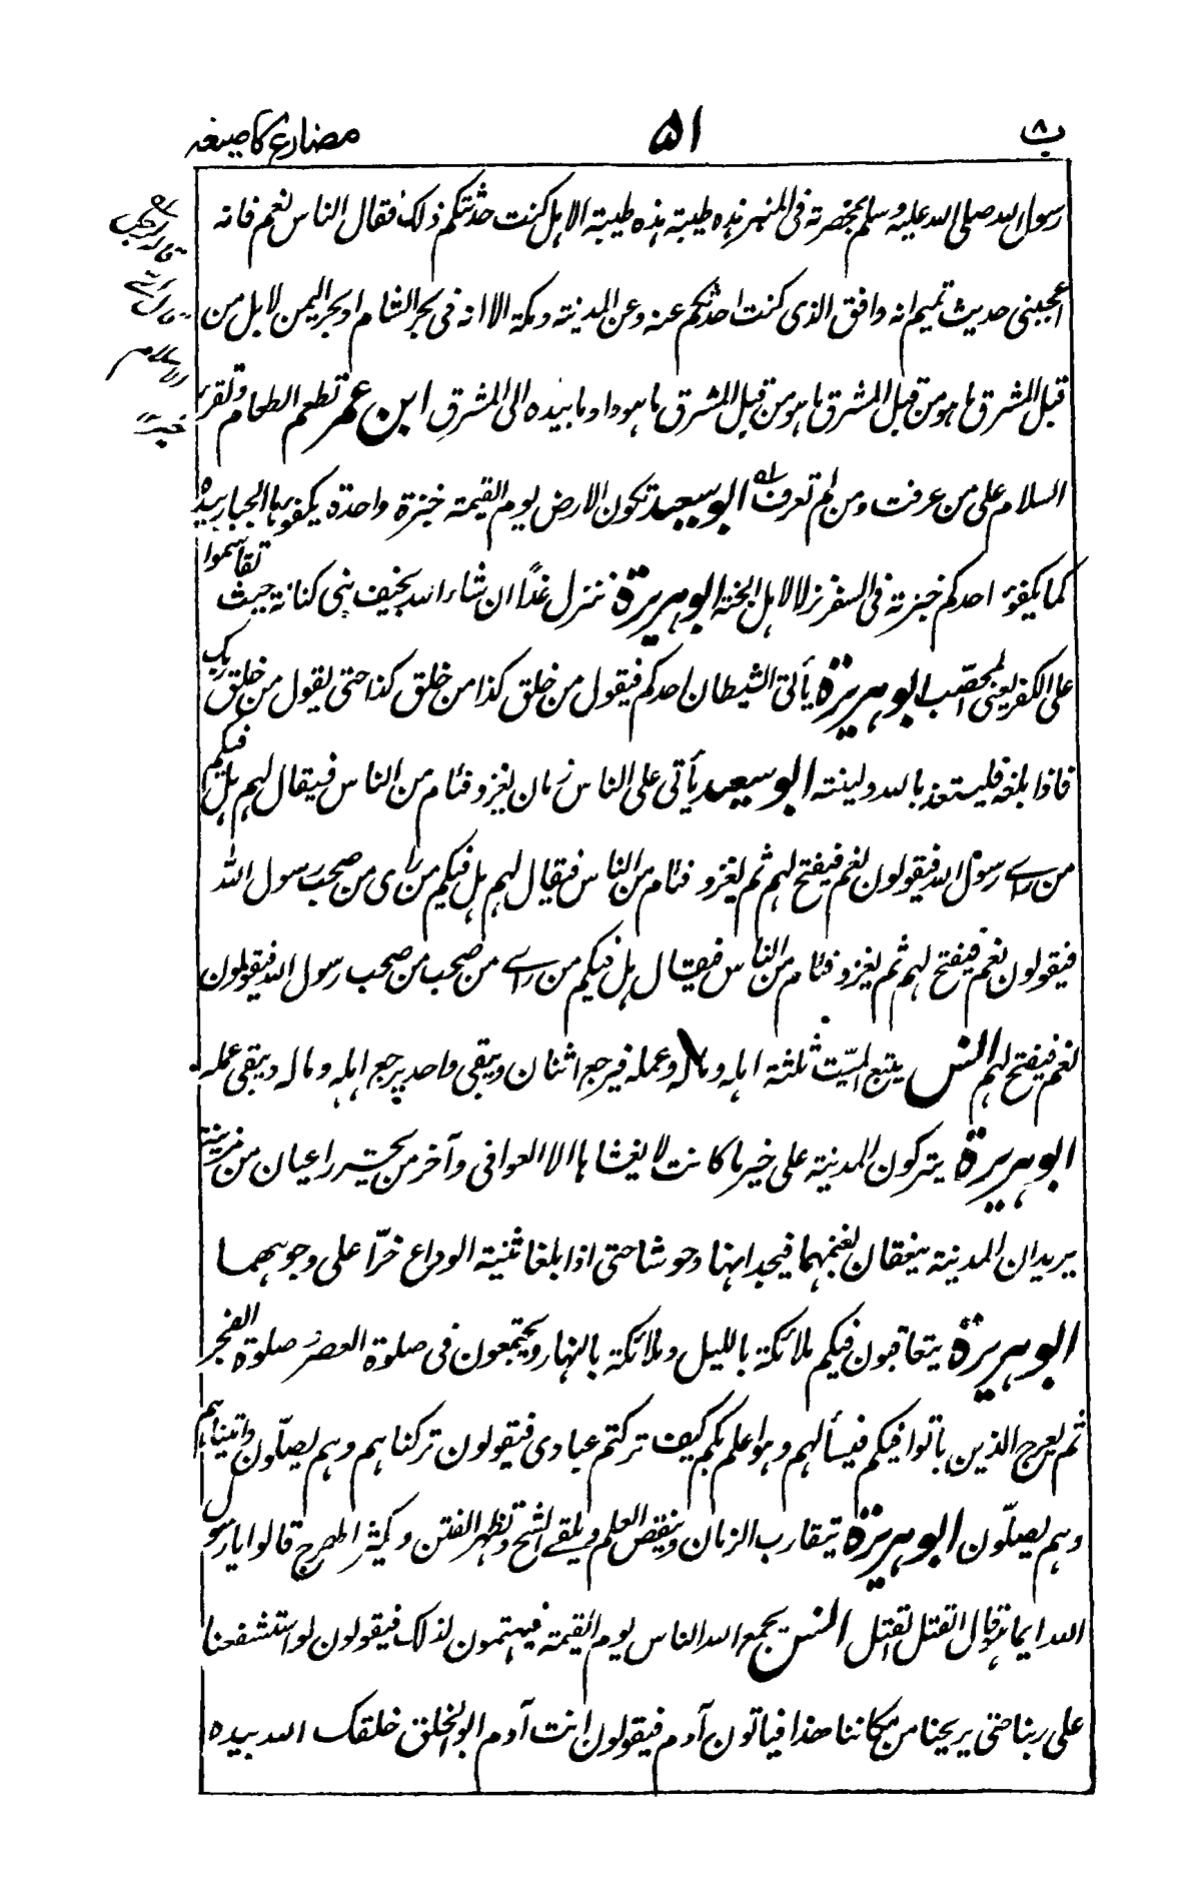 ب۸ ۵۱ مضارع کا صیغہ
رسول الله صلى الله عليه وسلم بمخصرته فى المنبر هذه طيبة هذه طيبة الا هل كنت حدثتكم ذلك فقال الناس نعم فانه
اعجبنى حديث تميم انه وافق الذى كنت احدثكم عنه وعن المدينة ومكة الا انه فى بحر الشام او بحر اليمن لا بل من
قبل المشرق ما هو من قبل المشرق ما هو من قبل المشرق ما هو واومأ بيده الى المشرق ابن عمر تطعم الطعام وتقرء
السلام على من عرفت ومن لم تعرف ابو سعيد تكون الارض يوم القيمة خبزة واحدة يكفؤها الجبار بيده
كما يكفؤ احدكم خبزته فى السفر نزلا لاهل الجنة ابو هريرة ننزل غدًا ان شاء الله بخيف بنى كنانة حيث تقاسموا
على الكفر يعنى المحصّب ابو هريرة يأتى الشيطان احدكم فيقول من خلق كذا من خلق كذا حتى يقول من خلق ربك
فاذا بلغه فليستعذ بالله ولينته ابو سعيد يأتى على الناس زمان يغزو فئام من الناس فيقال لهم هل فيكم
من راے رسول الله فيقولون نعم فيفتح لهم ثم يغزو فئام من الناس فيقال لهم هل فيكم من رأى من صحب رسول الله
فيقولون نعم فيفتح لهم ثم يغزو فئام من الناس فيقال هل فيكم من راے من صحب من صحب رسول الله فيقولون
نعم فيفتح لهم انس يتبع الميّت ثلثة اهله وماله وعمله فيرجع اثنان ويبقى واحد يرجع اهله وماله ويبقى عمله
ابو هريرة يتركون المدينة على خير ما كانت لا يغشاها الا العوافى وآخر من يحشر راعيان من مزينة
يريدان المدينة ينعقان بغنمهما فيجدانها وحوشا حتى اذا بلغا ثنية الوداع خرّا على وجوههما
ابو هريرة يتعاقبون فيكم ملائكة بالليل وملائكة بالنهار ويجتمعون فى صلوة العصر وصلوة الفجر
ثم يعرج الذين باتوا فيكم فيسألهم وهو اعلم بكم كيف تركتم عبادى فيقولون تركناهم وهم يصلّون واتيناهم
وهم يصلّون ابو هريرة يتقارب الزمان وينقص العلم ويلقے الشح وتظهر الفتن ويكثر الهرج قالوا يا رسول
الله ايما هو قال القتل القتل انس يجمع الله الناس يوم القيمة فيهتمون لذلك فيقولون لو استشفعنا
على ربنا حتى يريحنا من مكاننا هذا فياتون آدم فيقولون انت آدم ابو الخلق خلقك الله بيده